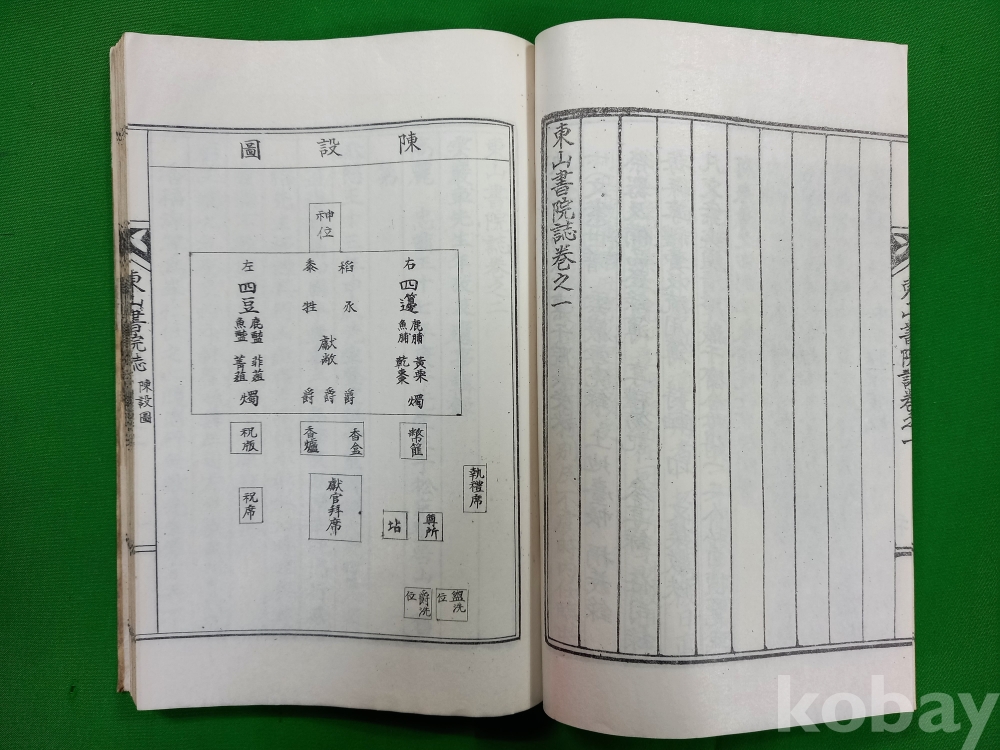 東山書院誌卷之一
東山書院誌卷之一
陳設圖
神位
右
四籩
鹿脯
魚脯
黃栗
乾棗
燭
稻
牲
獻
爵
爵
爵
左
四豆
鹿醢
魚醢
菲菹
菁菹
燭
幣篚
香盒
香爐
祝版
執禮席
尊所
坫
獻官拜席
祝席
盥洗位
爵洗位
東山書院誌
陳設圖
kobay